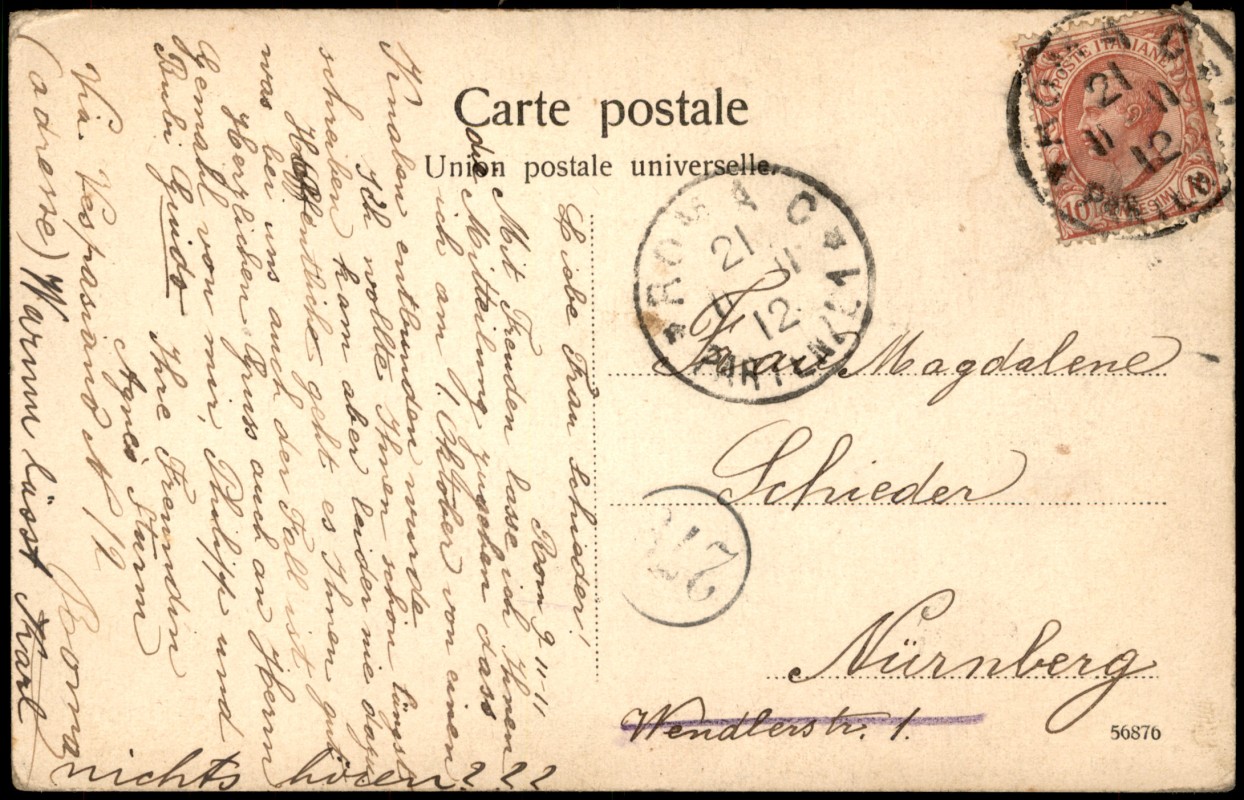 Carte postale
Union postale universelle.
POSTE ITALIANE
10
ROMA C
21
11
12
ROMA C
21 11
12
Frau Magdalene
Schieder
Nürnberg
Wendlerstr. 1.
56876
Rom 9 11 11
Liebe Frau Schieder!
Mit Freuden lasse ich Ihnen
die Mitteilung zugehen dass
ich am 1. Oktober von einen
Knaben entbunden wurde.
Ich wollte Ihnen schön längst
schreiben kam aber leider nie dazu
Hoffentliche geht es Ihnen gut
was bei uns auch der Fall ist.
Herzlichen Gruss auch an Herrn
Gemahl von mir, Philipp und
Bubi Guido Ihre Freundin
Agnes Sturm
Via Vespasiano No 12 Roma
(adresse) Warum lässt Karl
nichts hören???